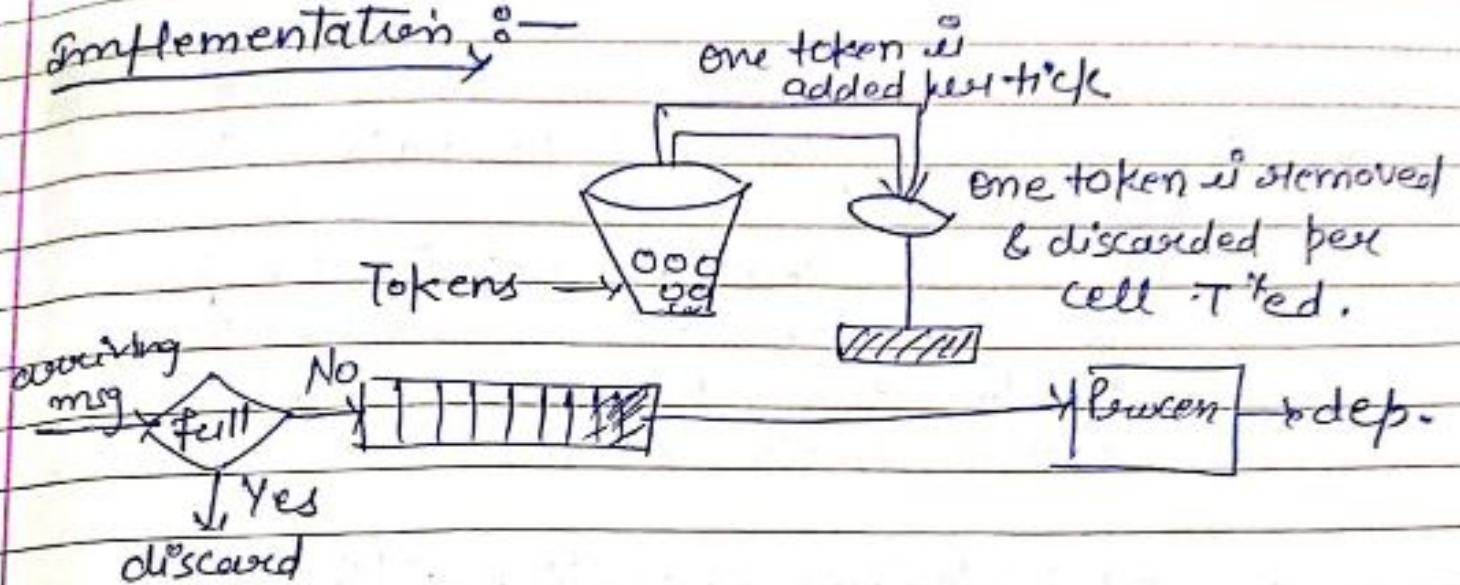 Implementation :—
one token is
added per tick
one token is removed
& discarded per
cell T^xed.
Tokens
arriving
msg
full
No
Process
dep.
Yes
discard